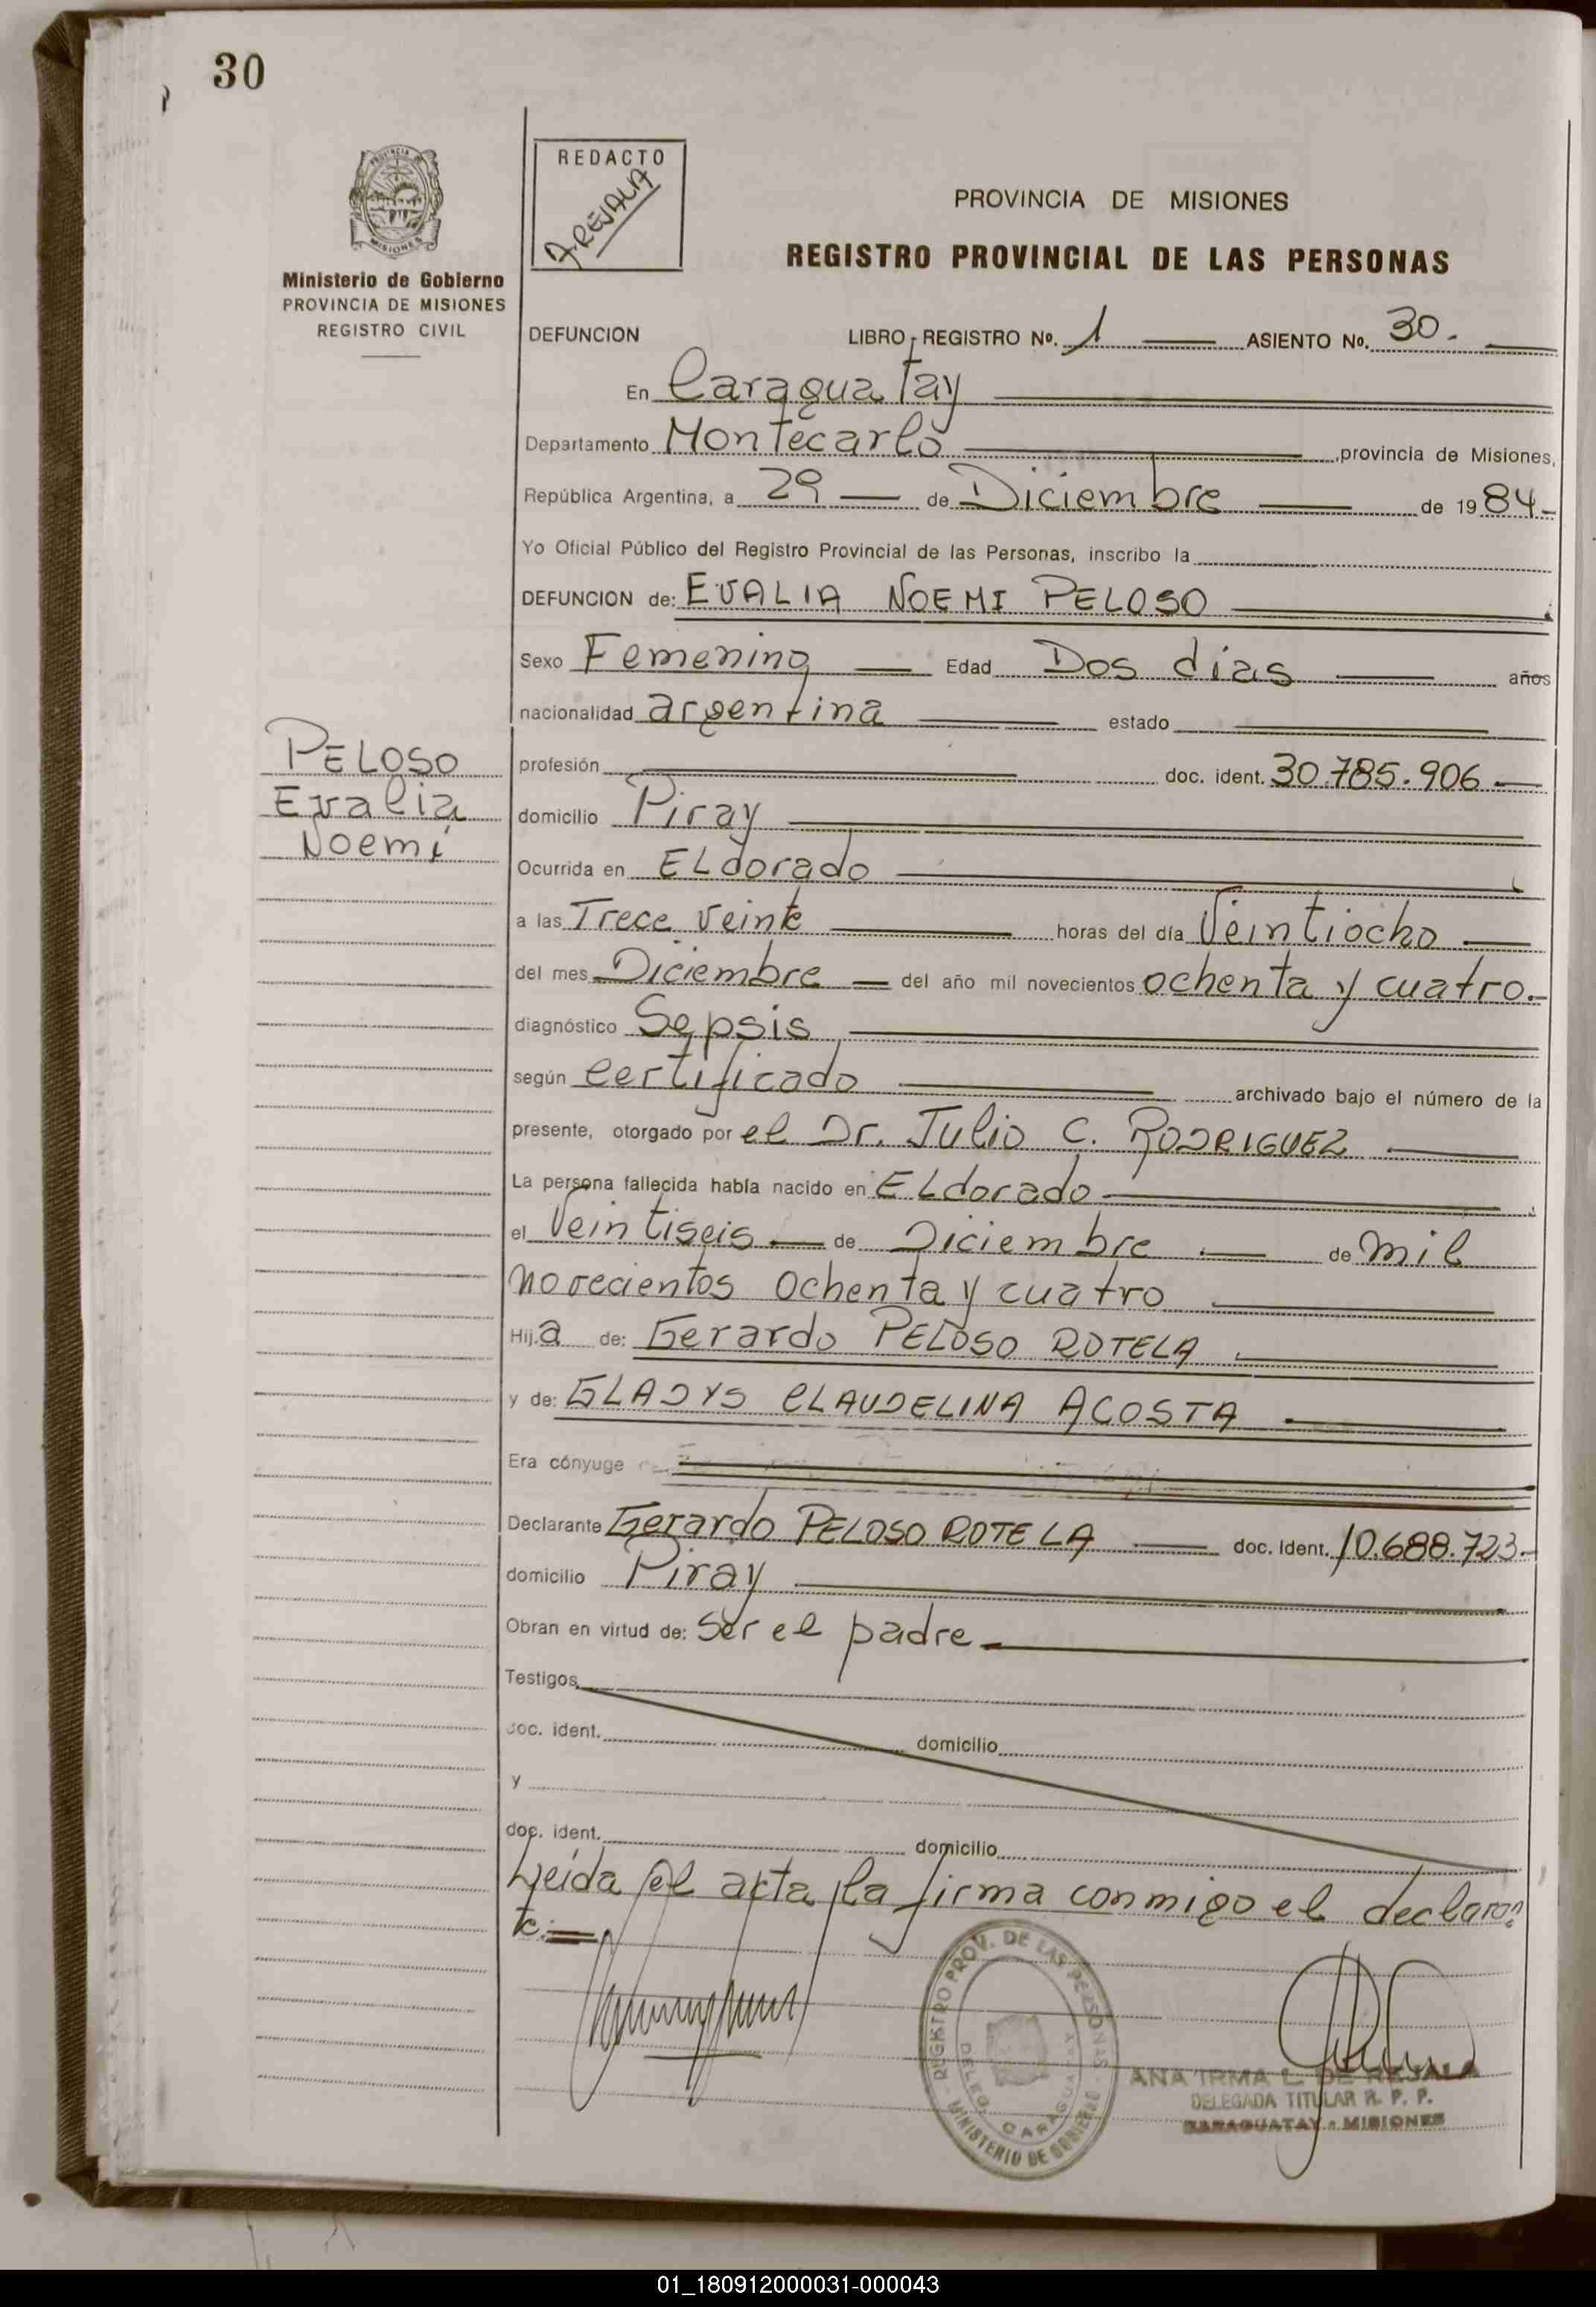 30
PROVINCIA DE MISIONES
Ministerio de Gobierno
PROVINCIA DE MISIONES
REGISTRO CIVIL
REDACTO
A. REJALA
PROVINCIA DE MISIONES
REGISTRO PROVINCIAL DE LAS PERSONAS
DEFUNCION LIBRO - REGISTRO No. 1 ASIENTO No. 30.
En Caraguatay
Departamento Montecarlo provincia de Misiones,
República Argentina, a 29 de Diciembre de 1984-
Yo Oficial Público del Registro Provincial de las Personas, inscribo la
DEFUNCION de: EVALIA NOEMI PELOSO
Sexo Femenino Edad Dos días años
nacionalidad argentina estado
PELOSO
Evalia
Noemí
profesión doc. ident. 30.785.906
domicilio Piray
Ocurrida en ELdorado
a las Trece veinte horas del día Veintiocho
del mes Diciembre del año mil novecientos ochenta y cuatro.
diagnóstico Sepsis
según certificado archivado bajo el número de la
presente, otorgado por el Dr. Julio C. RODRIGUEZ
La persona fallecida había nacido en ELdorado
el Veintiseis de Diciembre de mil
novecientos ochenta y cuatro
Hij.a de: Gerardo PELOSO ROTELA
y de: GLADYS CLAUDELINA ACOSTA
Era cónyuge
Declarante Gerardo PELOSO ROTELA doc. Ident. 10.688.723-
domicilio Piray
Obran en virtud de: ser el padre
Testigos
doc. ident. domicilio
y
doc. ident. domicilio
Leída el acta, la firma conmigo el declaran
te.
REGISTRO PROV. DE LAS PERSONAS
DELEG. CARAGUATAY
MINISTERIO DE GOBIERNO
ANA IRMA L. DE REJALA
DELEGADA TITULAR R. P. P.
CARAGUATAY - MISIONES
01_180912000031-000043